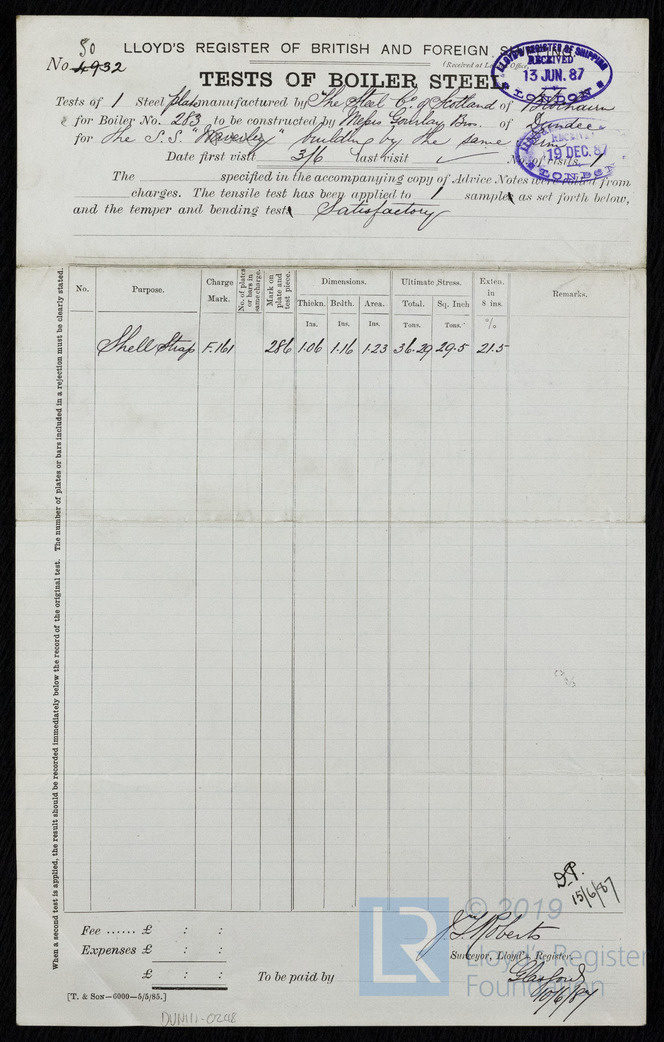 50
LLOYD'S REGISTER OF BRITISH AND FOREIGN SHIPPING.
No. 4932
(Received at London Office
TESTS OF BOILER STEEL
LLOYD'S REGISTER OF SHIPPING
RECEIVED
13 JUN. 87
LONDON
Tests of 1 Steel plate manufactured by The Steel Co. of Scotland of Blochairn
for Boiler No. 283 to be constructed by Messrs Gourlay Bros. of Dundee
for the S.S. "Waverley" building by the same firm
RECEIVED
19 DEC. 87
LONDON
Date first visit 3/6 last visit ✓ No. of visits, 1
The specified in the accompanying copy of Advice Notes were rolled from
charges. The tensile test has been applied to 1 sample as set forth below,
and the temper and bending test Satisfactory
When a second test is applied, the result should be recorded immediately below the record of the original test. The number of plates or bars included in a rejection must be clearly stated.
No. Purpose. Charge Mark. No. of plates or bars in same charge. Mark on plate and test piece. Dimensions. Ultimate Stress. Exten. in 8 ins. Remarks.
Thickn. Brdth. Area. Total. Sq. Inch
Ins. Ins. Ins. Tons. Tons. %
Shell Strap F.161 286 1.06 1.16 1.23 36.29 29.5 21.5
D.P.
15/6/87
Fee ...... £ : :
Expenses £ : :
£ : :
To be paid by
J. T. Roberts
Surveyor, Lloyd's Register,
Glasgow
10/6/87
[T. & SON—6000—5/5/85.]
DUN111-0248
LR
© 2019
Lloyd's Register
Foundation